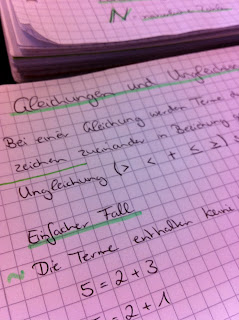 N
Gleichungen und
Bei einer Gleichung werden Terme
zeichen zueinander in Beziehung
Ungleichung (> < ≠ ≤ ≥)
Einfacher Fall
~ Die Terme enthalten
5 = 2 + 3
= 2 + 1